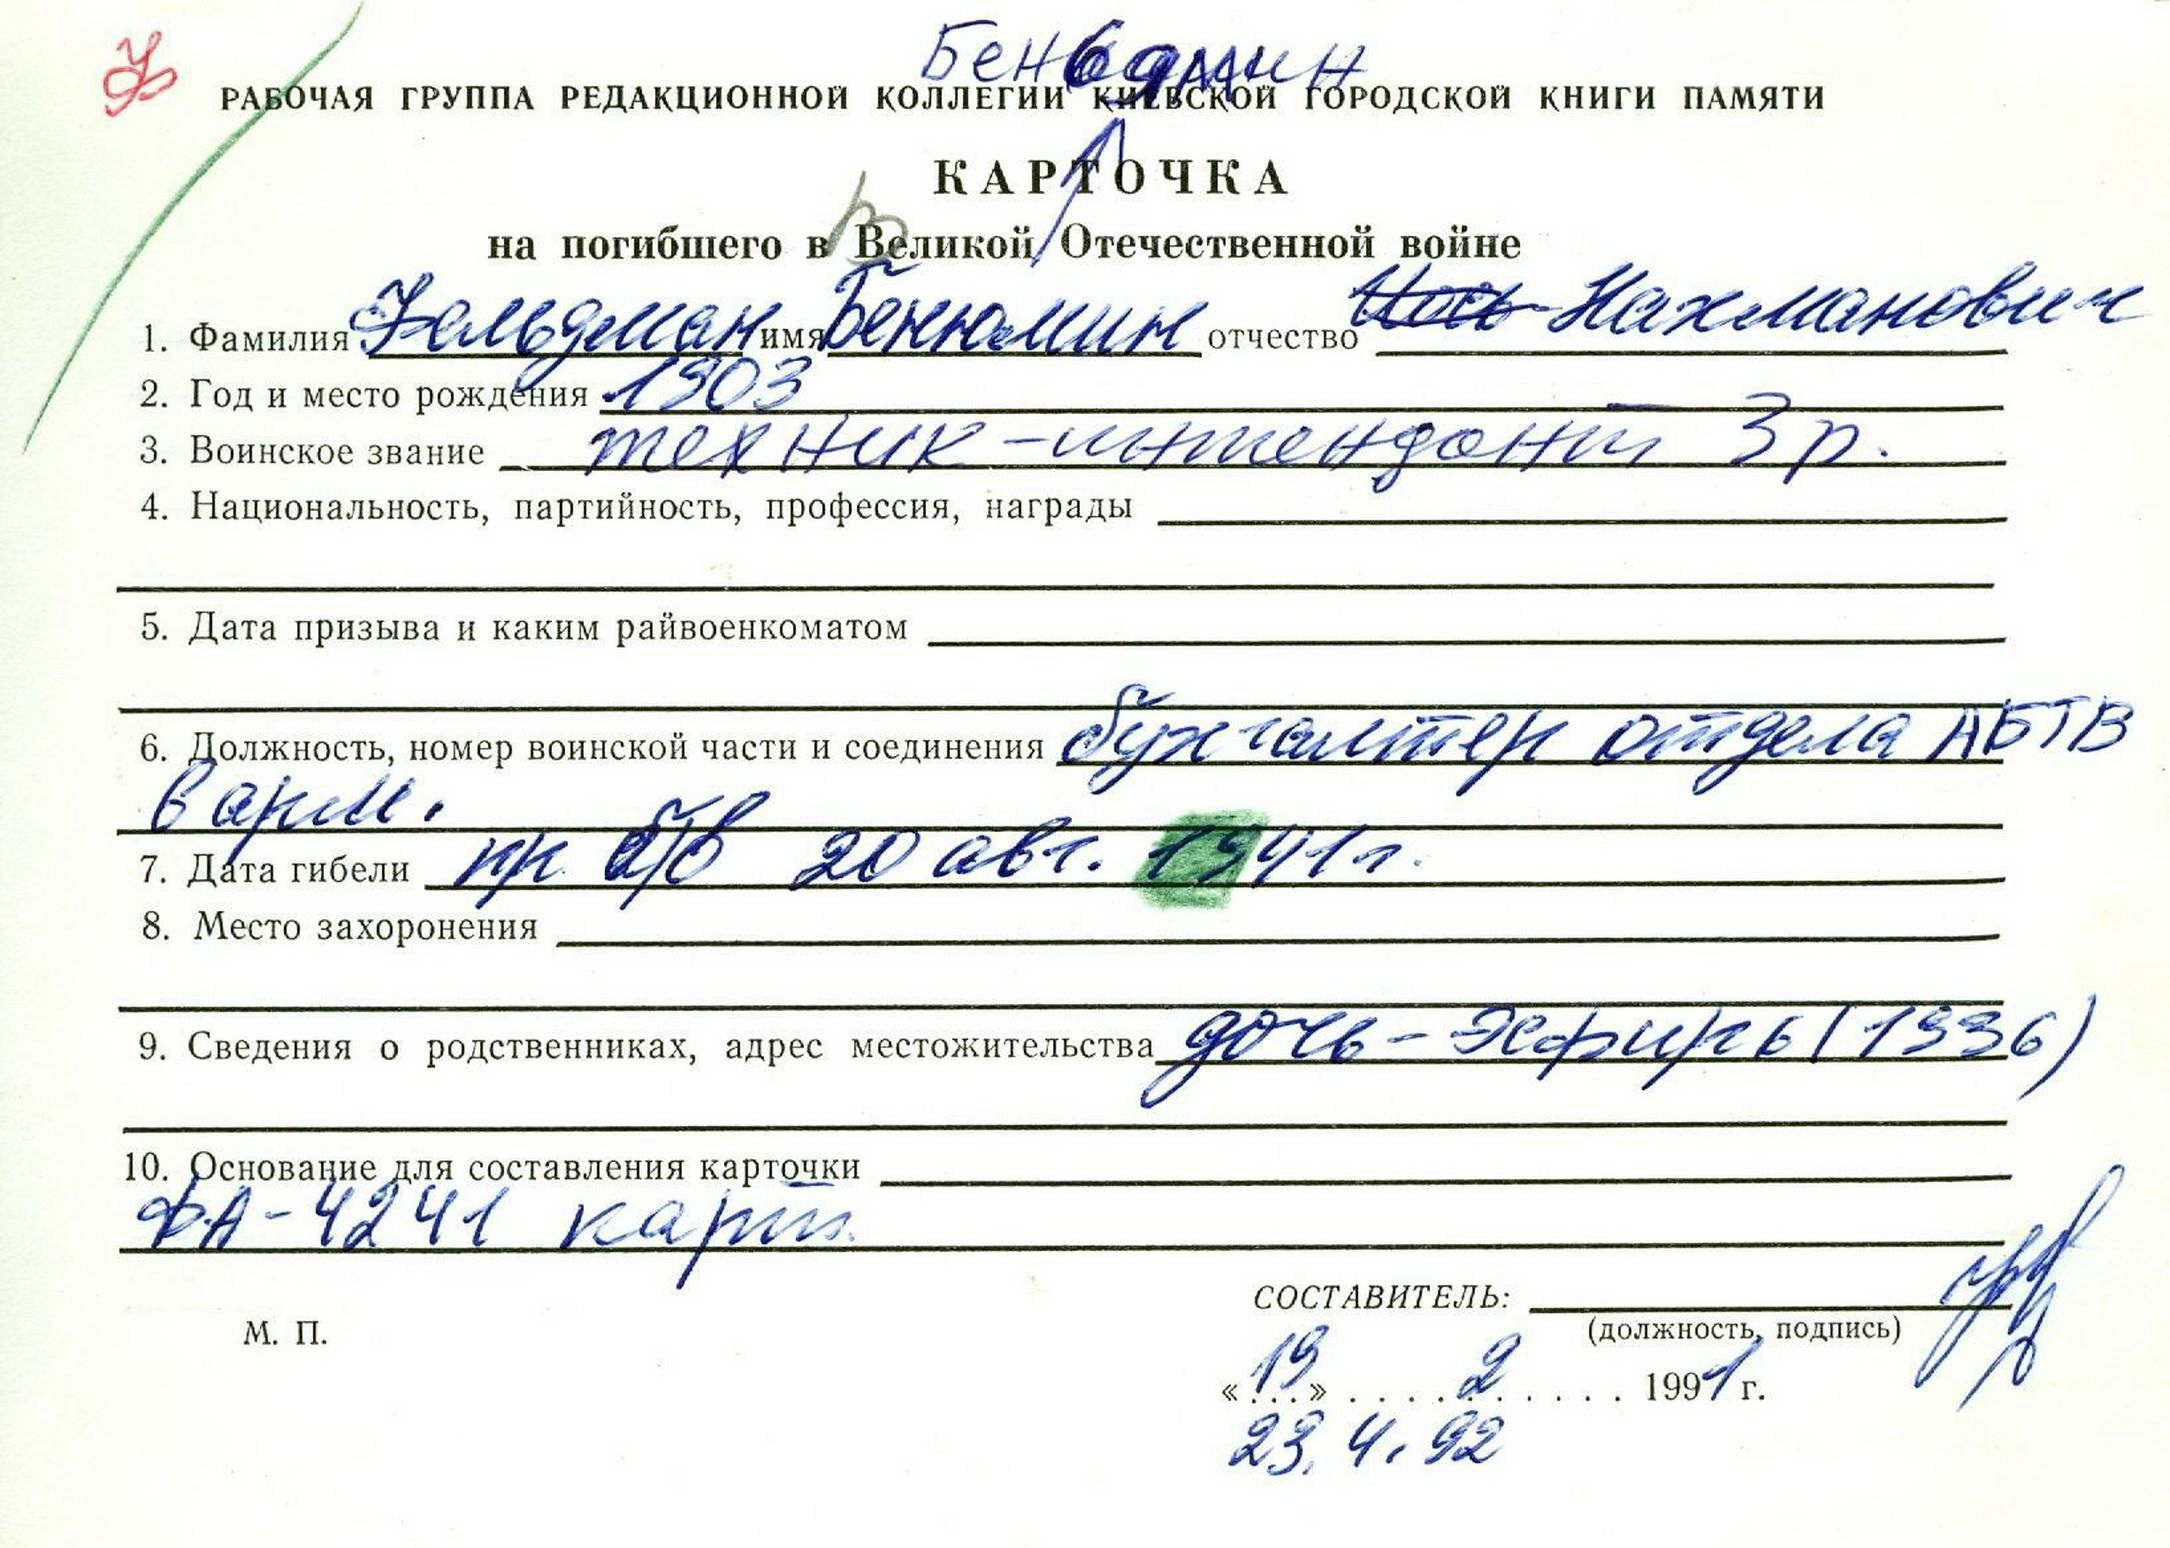 Беньямин
РАБОЧАЯ ГРУППА РЕДАКЦИОННОЙ КОЛЛЕГИИ КИЕВСКОЙ ГОРОДСКОЙ КНИГИ ПАМЯТИ
КАРТОЧКА
на погибшего в Великой Отечественной войне
1. Фамилия Фельдман имя Бенюмин отчество Нахманович
2. Год и место рождения 1903
3. Воинское звание техник-интендант 3 р.
4. Национальность, партийность, профессия, награды
5. Дата призыва и каким райвоенкоматом
6. Должность, номер воинской части и соединения бухгалтер отдела АБТВ
6 арм.
7. Дата гибели пр б/в 20 авг. 1941 г.
8. Место захоронения
9. Сведения о родственниках, адрес местожительства дочь - Эсфирь (1936)
10. Основание для составления карточки
ФА-4241 карт.
СОСТАВИТЕЛЬ:
(должность, подпись)
М. П.
«19» 2 1991 г.
23.4.92